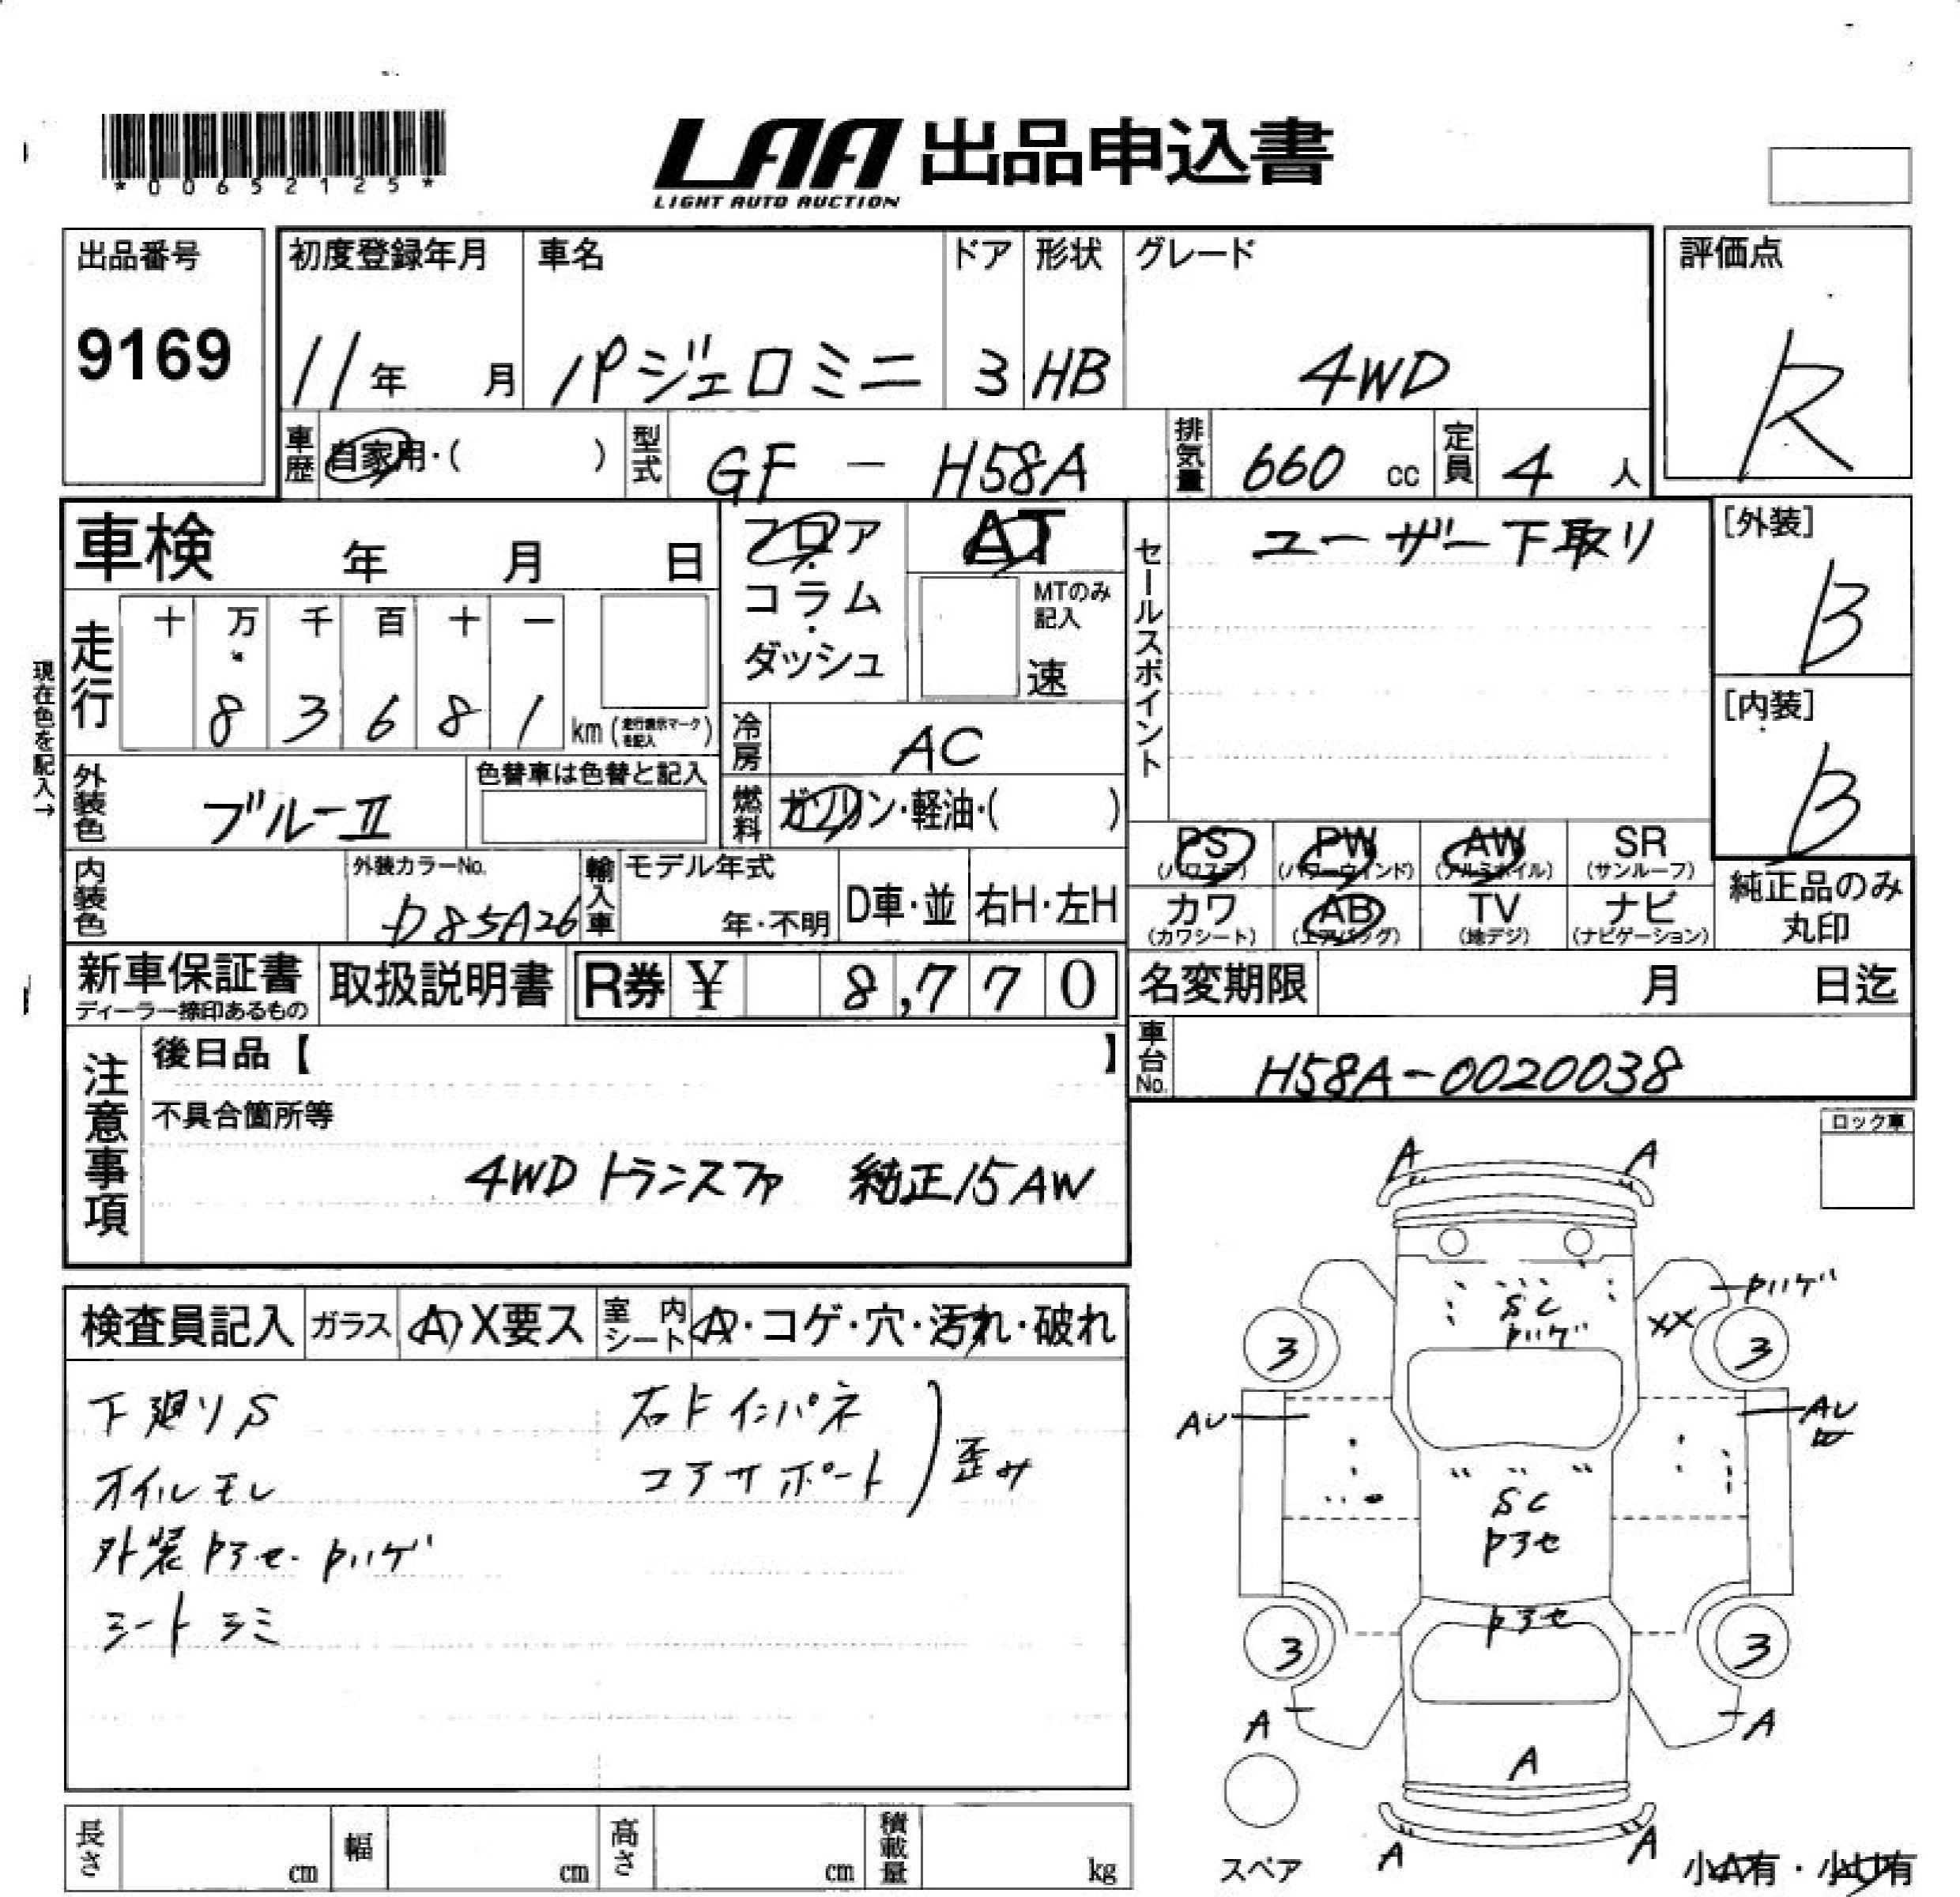 *00652125*
LAA 出品申込書
LIGHT AUTO AUCTION
出品番号
9169
初度登録年月
11年 月
車名
パジェロミニ
ドア
3
形状
HB
グレード
4WD
評価点
R
車歴
自家用・( )
型式
GF - H58A
排気量
660 cc
定員
4 人
車検 年 月 日
フロア
・
コラム
・
ダッシュ
AT
MTのみ
記入
速
セールスポイント
ユーザー下取リ
[外装]
B
[内装]
B
現在色を記入→
走行
十 万 千 百 十 一
8 3 6 8 1
km (走行表示マークを記入)
冷房
AC
外装色
ブルーII
色替車は色替と記入
燃料
ガソリン・軽油・( )
PS
(パワステ)
PW
(パワーウィンド)
AW
(アルミホイル)
SR
(サンルーフ)
カワ
(カワシート)
AB
(エアバッグ)
TV
(地デジ)
ナビ
(ナビゲーション)
純正品のみ
丸印
内装色
外装カラーNo.
D85A26
輸入車
モデル年式
年・不明
D車・並
右H・左H
新車保証書
ディーラー捺印あるもの
取扱説明書
R券 ¥ 8,770
名変期限 月 日迄
車台No.
H58A-0020038
注意事項
後日品【 】
不具合箇所等
4WDトランスファ 純正15AW
ロック車
検査員記入
ガラス
A X要ス
室内シート
A・コゲ・穴・汚れ・破れ
下廻りS
オイルモレ
外装アセ・ハゲ
シートシミ
右Fインパネ
コアサポート
歪み
A A
SC
ハゲ
ハゲ
XX
3 3
AU AU
SC
アセ
アセ
3 3
A A
A
A A
スペア
小A有・小U有
長さ cm
幅 cm
高さ cm
積載量 kg